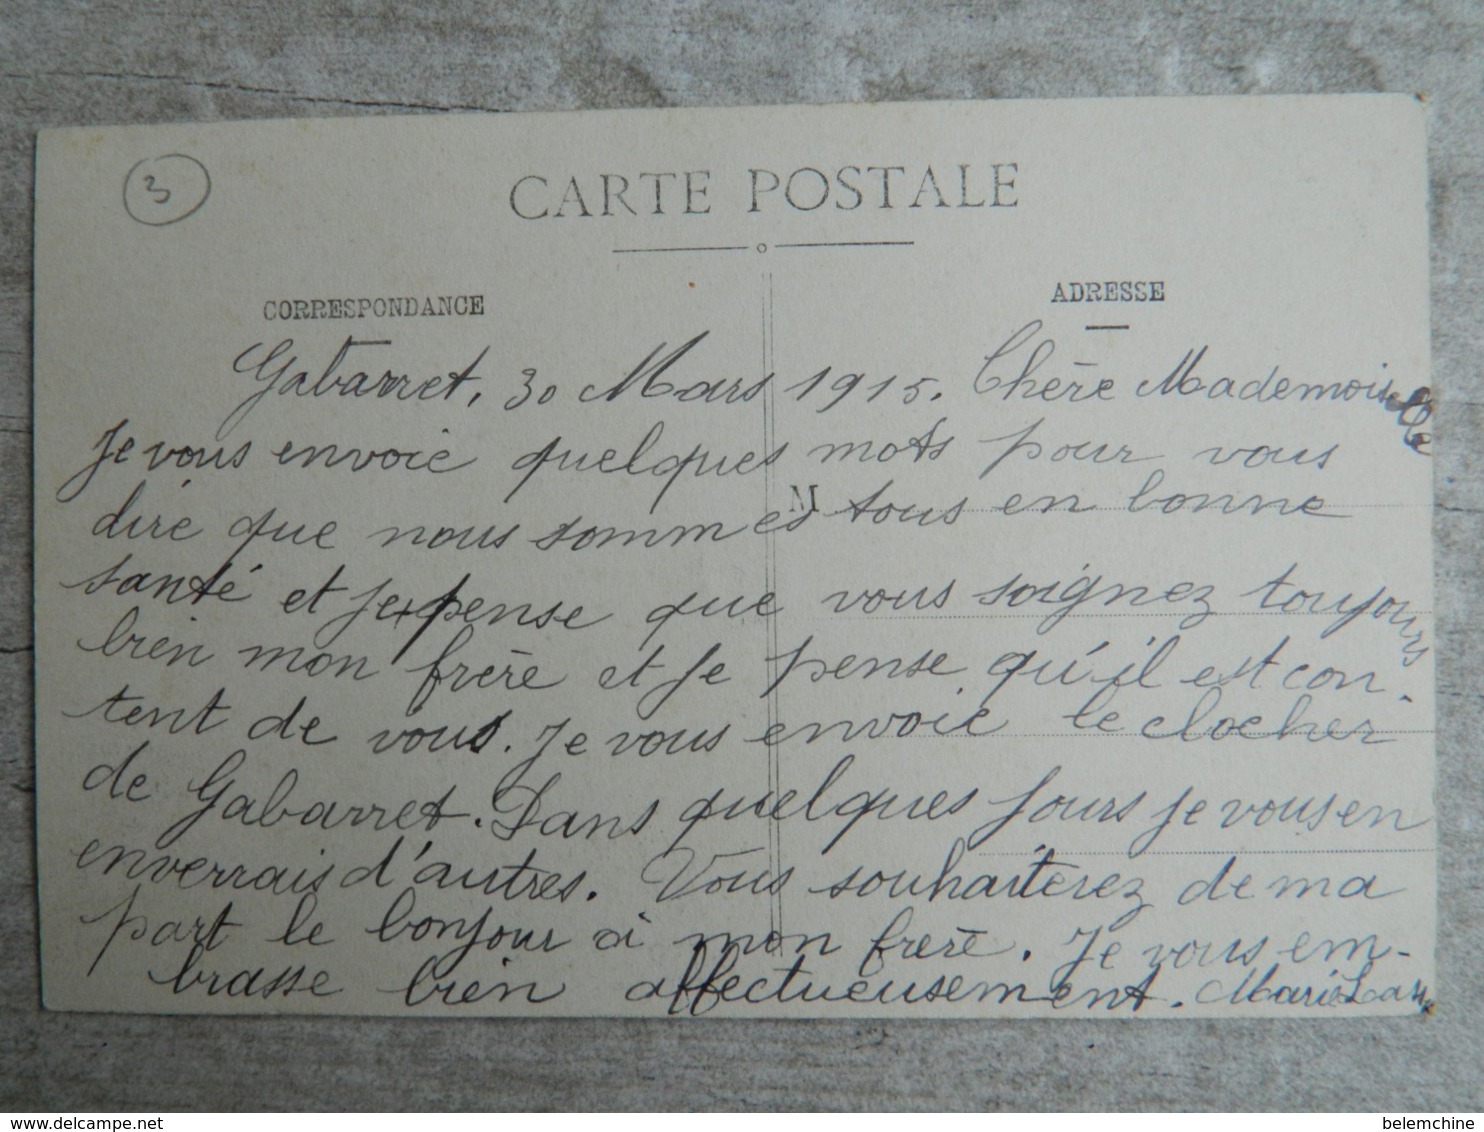 3
CARTE POSTALE
CORRESPONDANCE
ADRESSE
Gabarret, 30 Mars 1915. Chère Mademoiselle
Je vous envoie quelques mots pour vous
M
dire que nous sommes tous en bonne
santé et je pense que vous soignez toujours
bien mon frère et je pense qu'il est con-
tent de vous. Je vous envoie le clocher
de Gabarret. Dans quelques jours je vous en
enverrais d'autres. Vous souhaiterez de ma
part le bonjour à mon frère. Je vous em-
brasse bien affectueusement. Marie
delcampe.net
belemchine